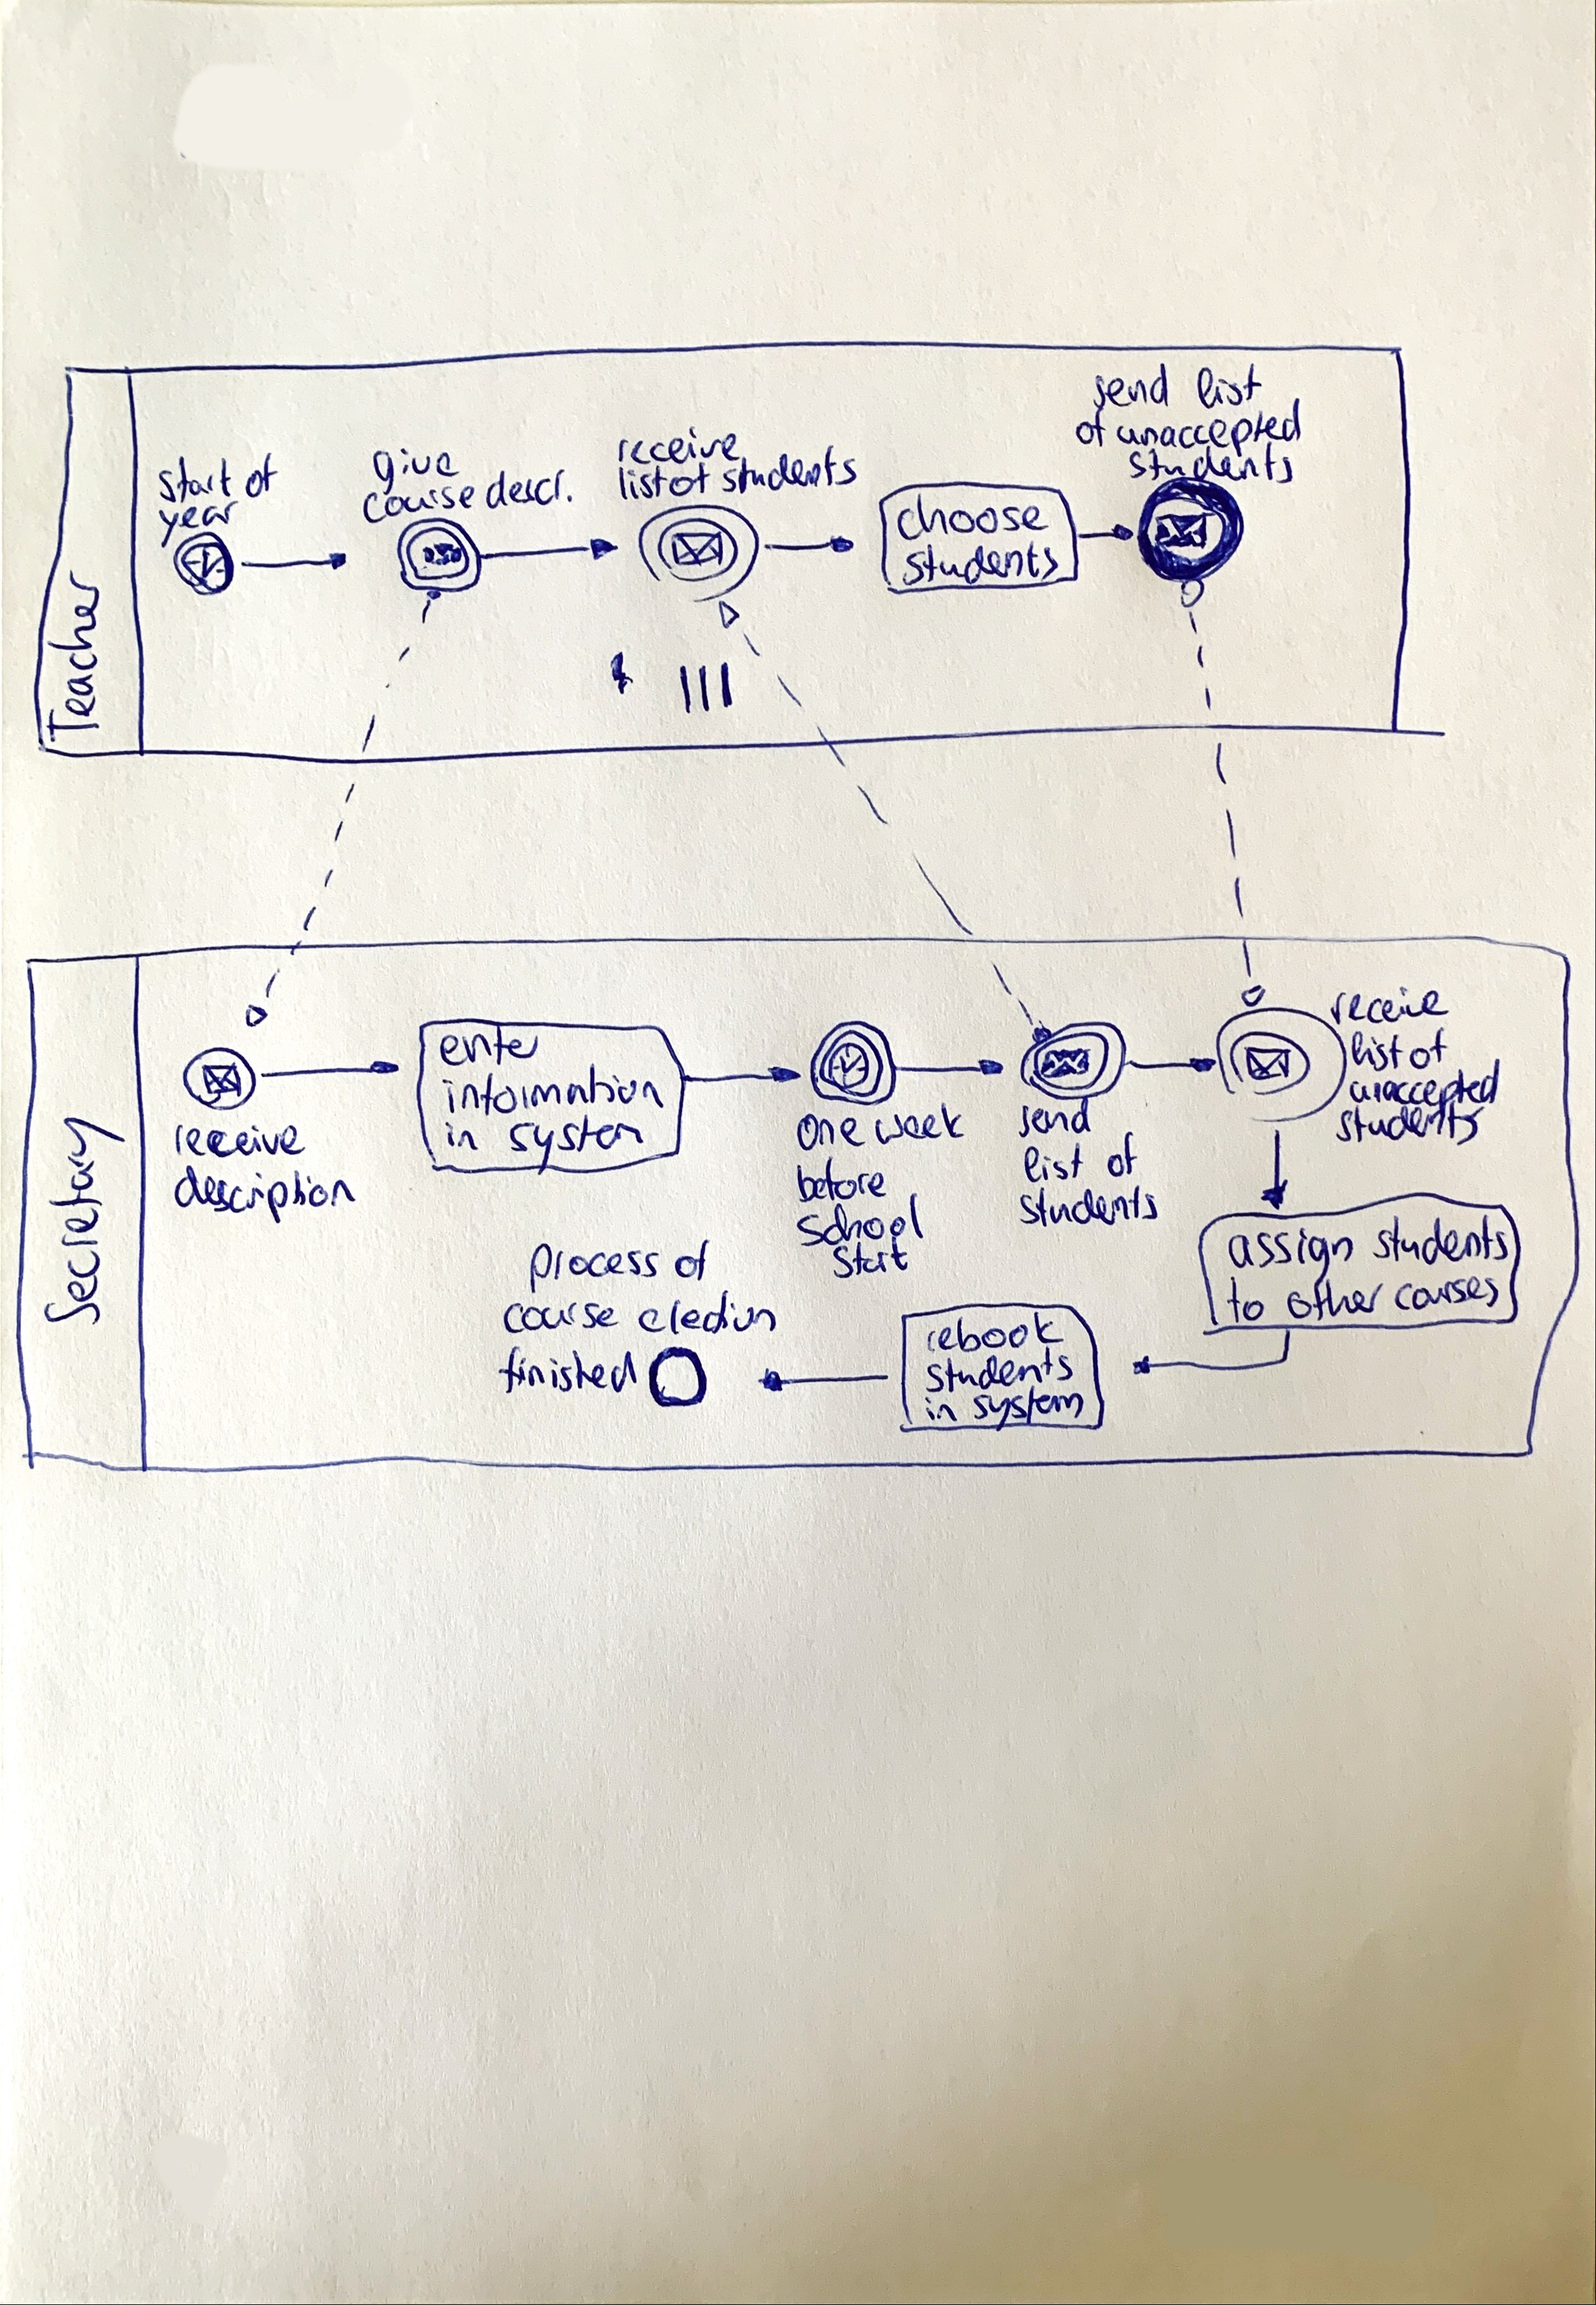 Teacher
start of
year
give
course descr.
receive
list of students
choose
students
send list
of unaccepted
students
Secretary
receive
description
enter
information
in system
one week
before
school
start
send
list of
students
receive
list of
unaccepted
students
assign students
to other courses
rebook
students
in system
process of
course election
finished